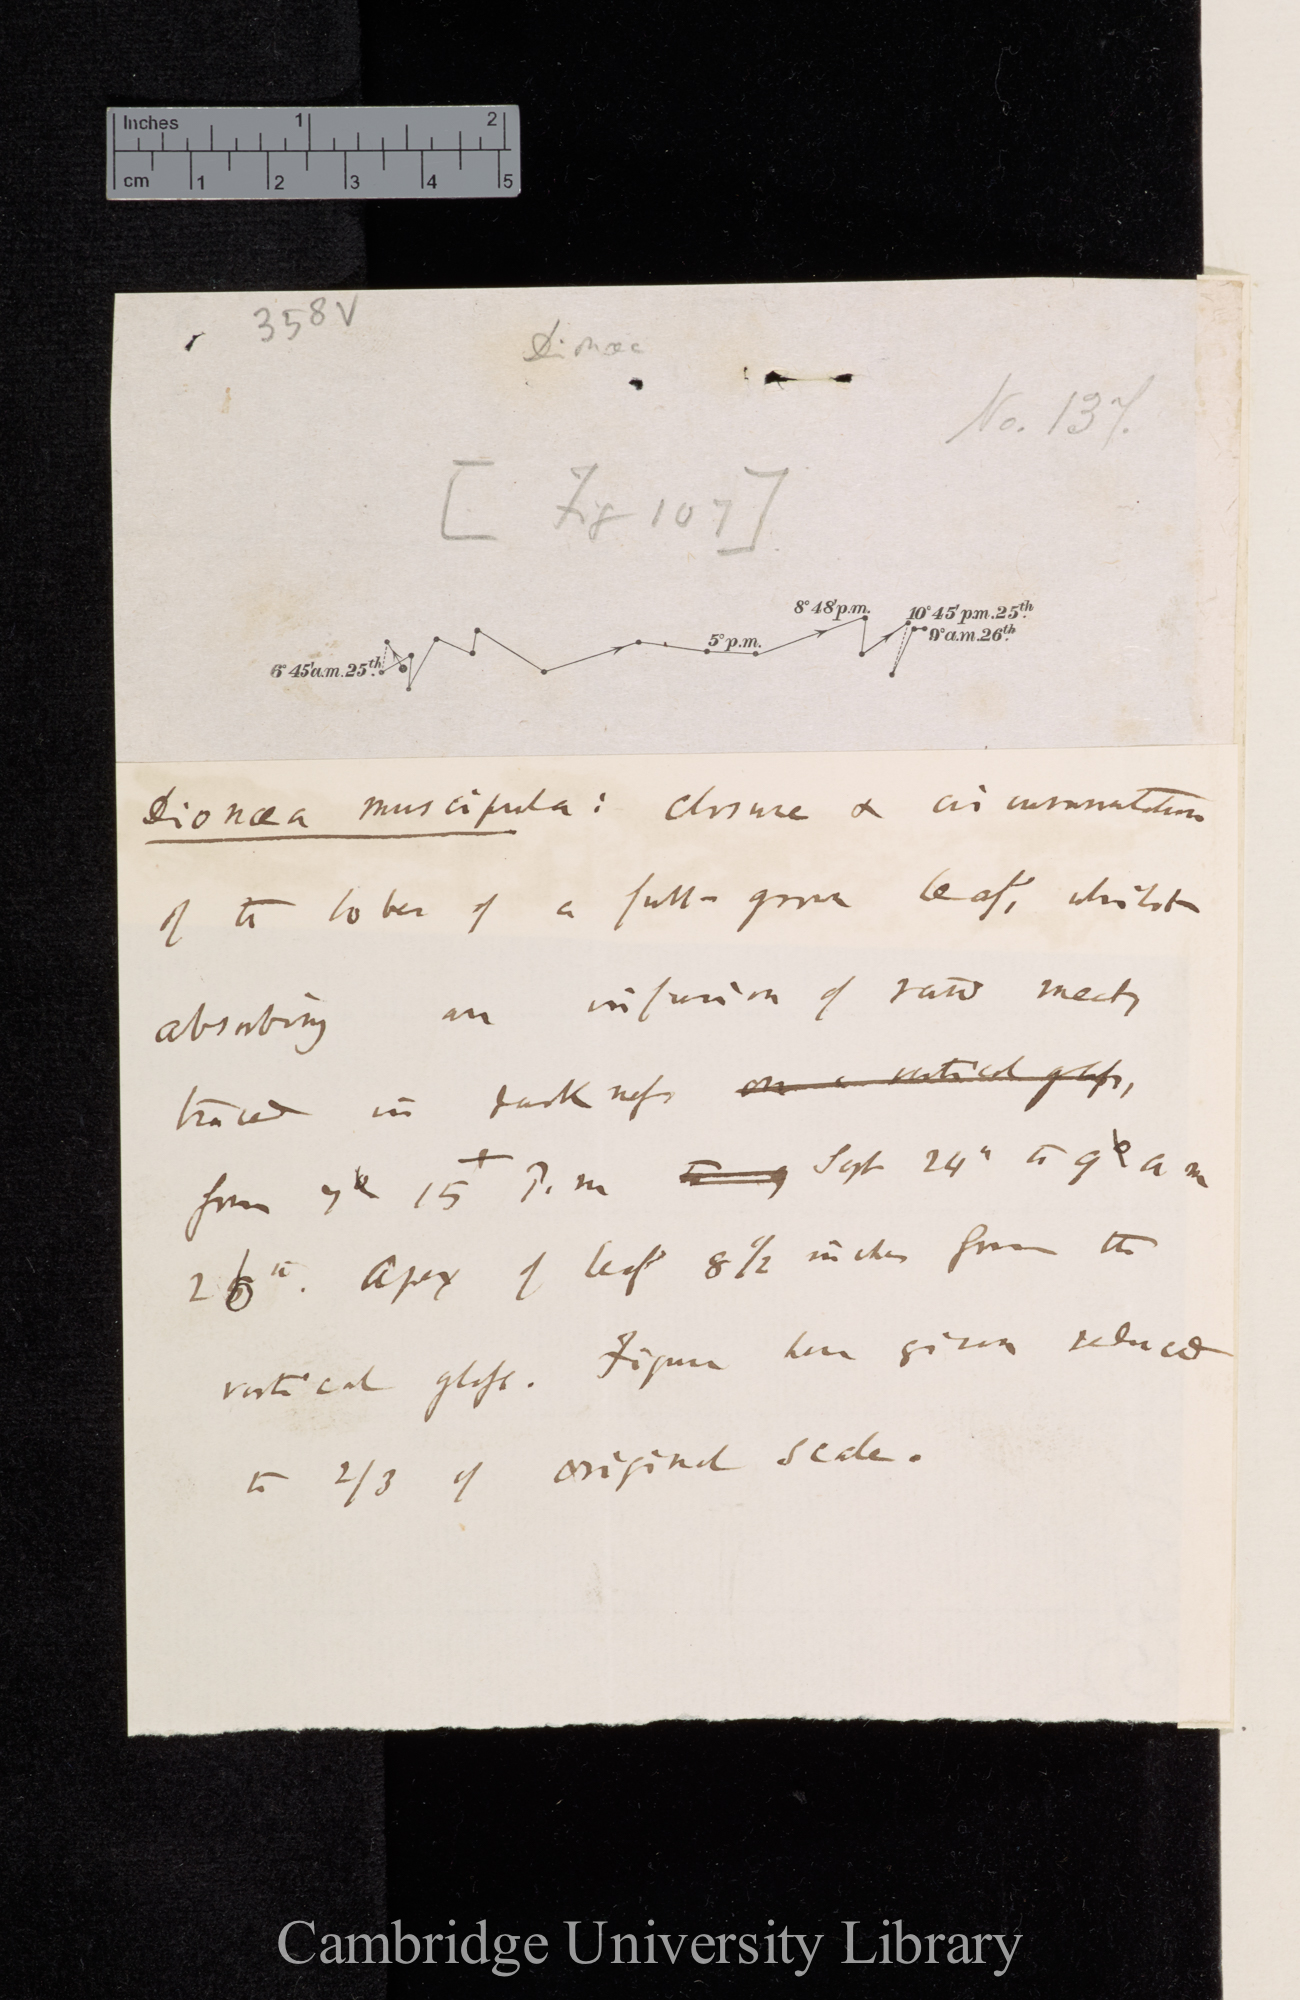 Inches 1 2
cm 1 2 3 4 5
358V
Dionæa
No. 137.
[Fig 107]
8° 48' p.m. 10° 45' p.m. 25th.
5° p.m. 9° a.m. 26th
6° 45' a.m. 25th.
Dionæa muscipula: closure & circumnutation
of the lobes of a full-grown leaf, whilst
absorbing an infusion of raw meat,
traced in darkness on a vertical glass,
from 7° 15' P.m to 9 Sept 24th to 9° a m
26th. Apex of leaf 8 1/2 inches from the
vertical glass. Figure here given reduced
to 2/3 of original scale.
Cambridge University Library